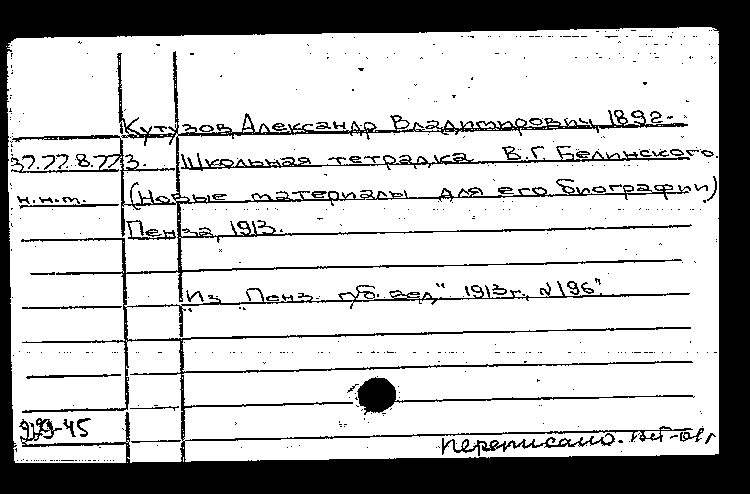 Кутузов, Александр Владимирович, 1892-
37.77.8.773. Школьная тетрадка В.Г. Белинского.
н.н.т. (Новые материалы для его биографии)
Пенза, 1913.
"Из "Пенз. губ. вед." 1913 г., №196".
229-45
переписано.